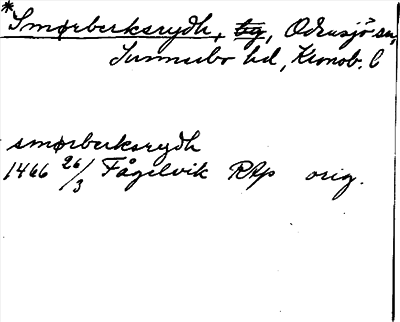 *Smørberksrydh, tg, Odensjö sn,
Sunnerbo hd, Kronob. l
smørberksrydh
1466 26/3 Fågelvik RAp orig.